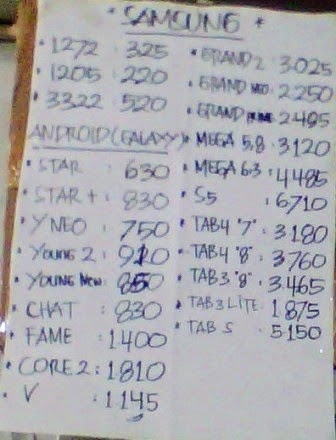 * SAMSUNG *
• 1272 : 325
• 1205 : 220
• 3322 : 520
ANDROID (GALAXY)
• STAR : 630
• STAR + : 830
• Y NEO : 750
• YOUNG 2 : 910
• YOUNG New : 850
• CHAT : 830
• FAME : 1400
• CORE 2 : 1810
• V : 1145
• GRAND 2 : 3025
• GRAND NEO : 2250
• GRAND PRIME : 2485
• MEGA 5.8 : 3120
• MEGA 6.3 : 4485
• S5 : 6.710
• TAB4 "7" : 3180
• TAB4 "8" : 3760
• TAB3 "8" : 3.465
• TAB3 LITE : 1875
• TAB S : 5150